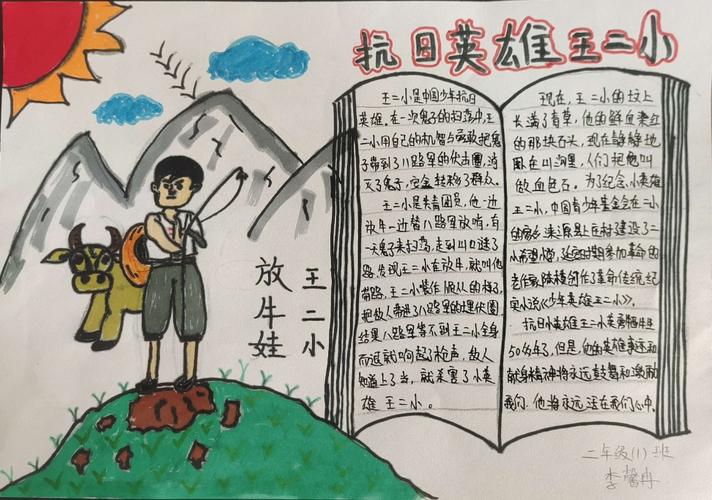 抗日英雄王二小
王二小是中国少年抗日
英雄。在一次鬼子的扫荡中,王
二小用自己的机智与勇敢把鬼
子带到了八路军的伏击圈,消
灭了鬼子,安全转移了群众。
王二小是共青团员,他一边
放牛一边替八路军放哨,有
一天鬼子来扫荡,走到山口迷了
路,发现王二小在放牛,就叫他
带路,王二小装作顺从的样子,
把敌人带进了八路军的埋伏圈
结果八路军等不到王二小全身
而退就响起了枪声,敌人
知道上了当,就杀害了小英
雄王二小。
现在,王二小的坟上
长满了青草,他的鲜血染红
的那块石头,现在静静地
困在山沟里,人们把他叫
做血色石。为了纪念小英雄
王二小,中国青少年基金会在二小
的家乡涞源县上庄村建设了二
小希望小学,延安时期参加革命的
老作家陈模创作了革命传统纪
实小说《少年英雄王二小》。
抗日小英雄王二小英勇牺牲
50多年了,但是,他的英雄事迹和
献身精神将永远鼓舞和激励
我们。他将永远活在我们心中。
放牛娃
王二小
二年级(1)班
李馨冉